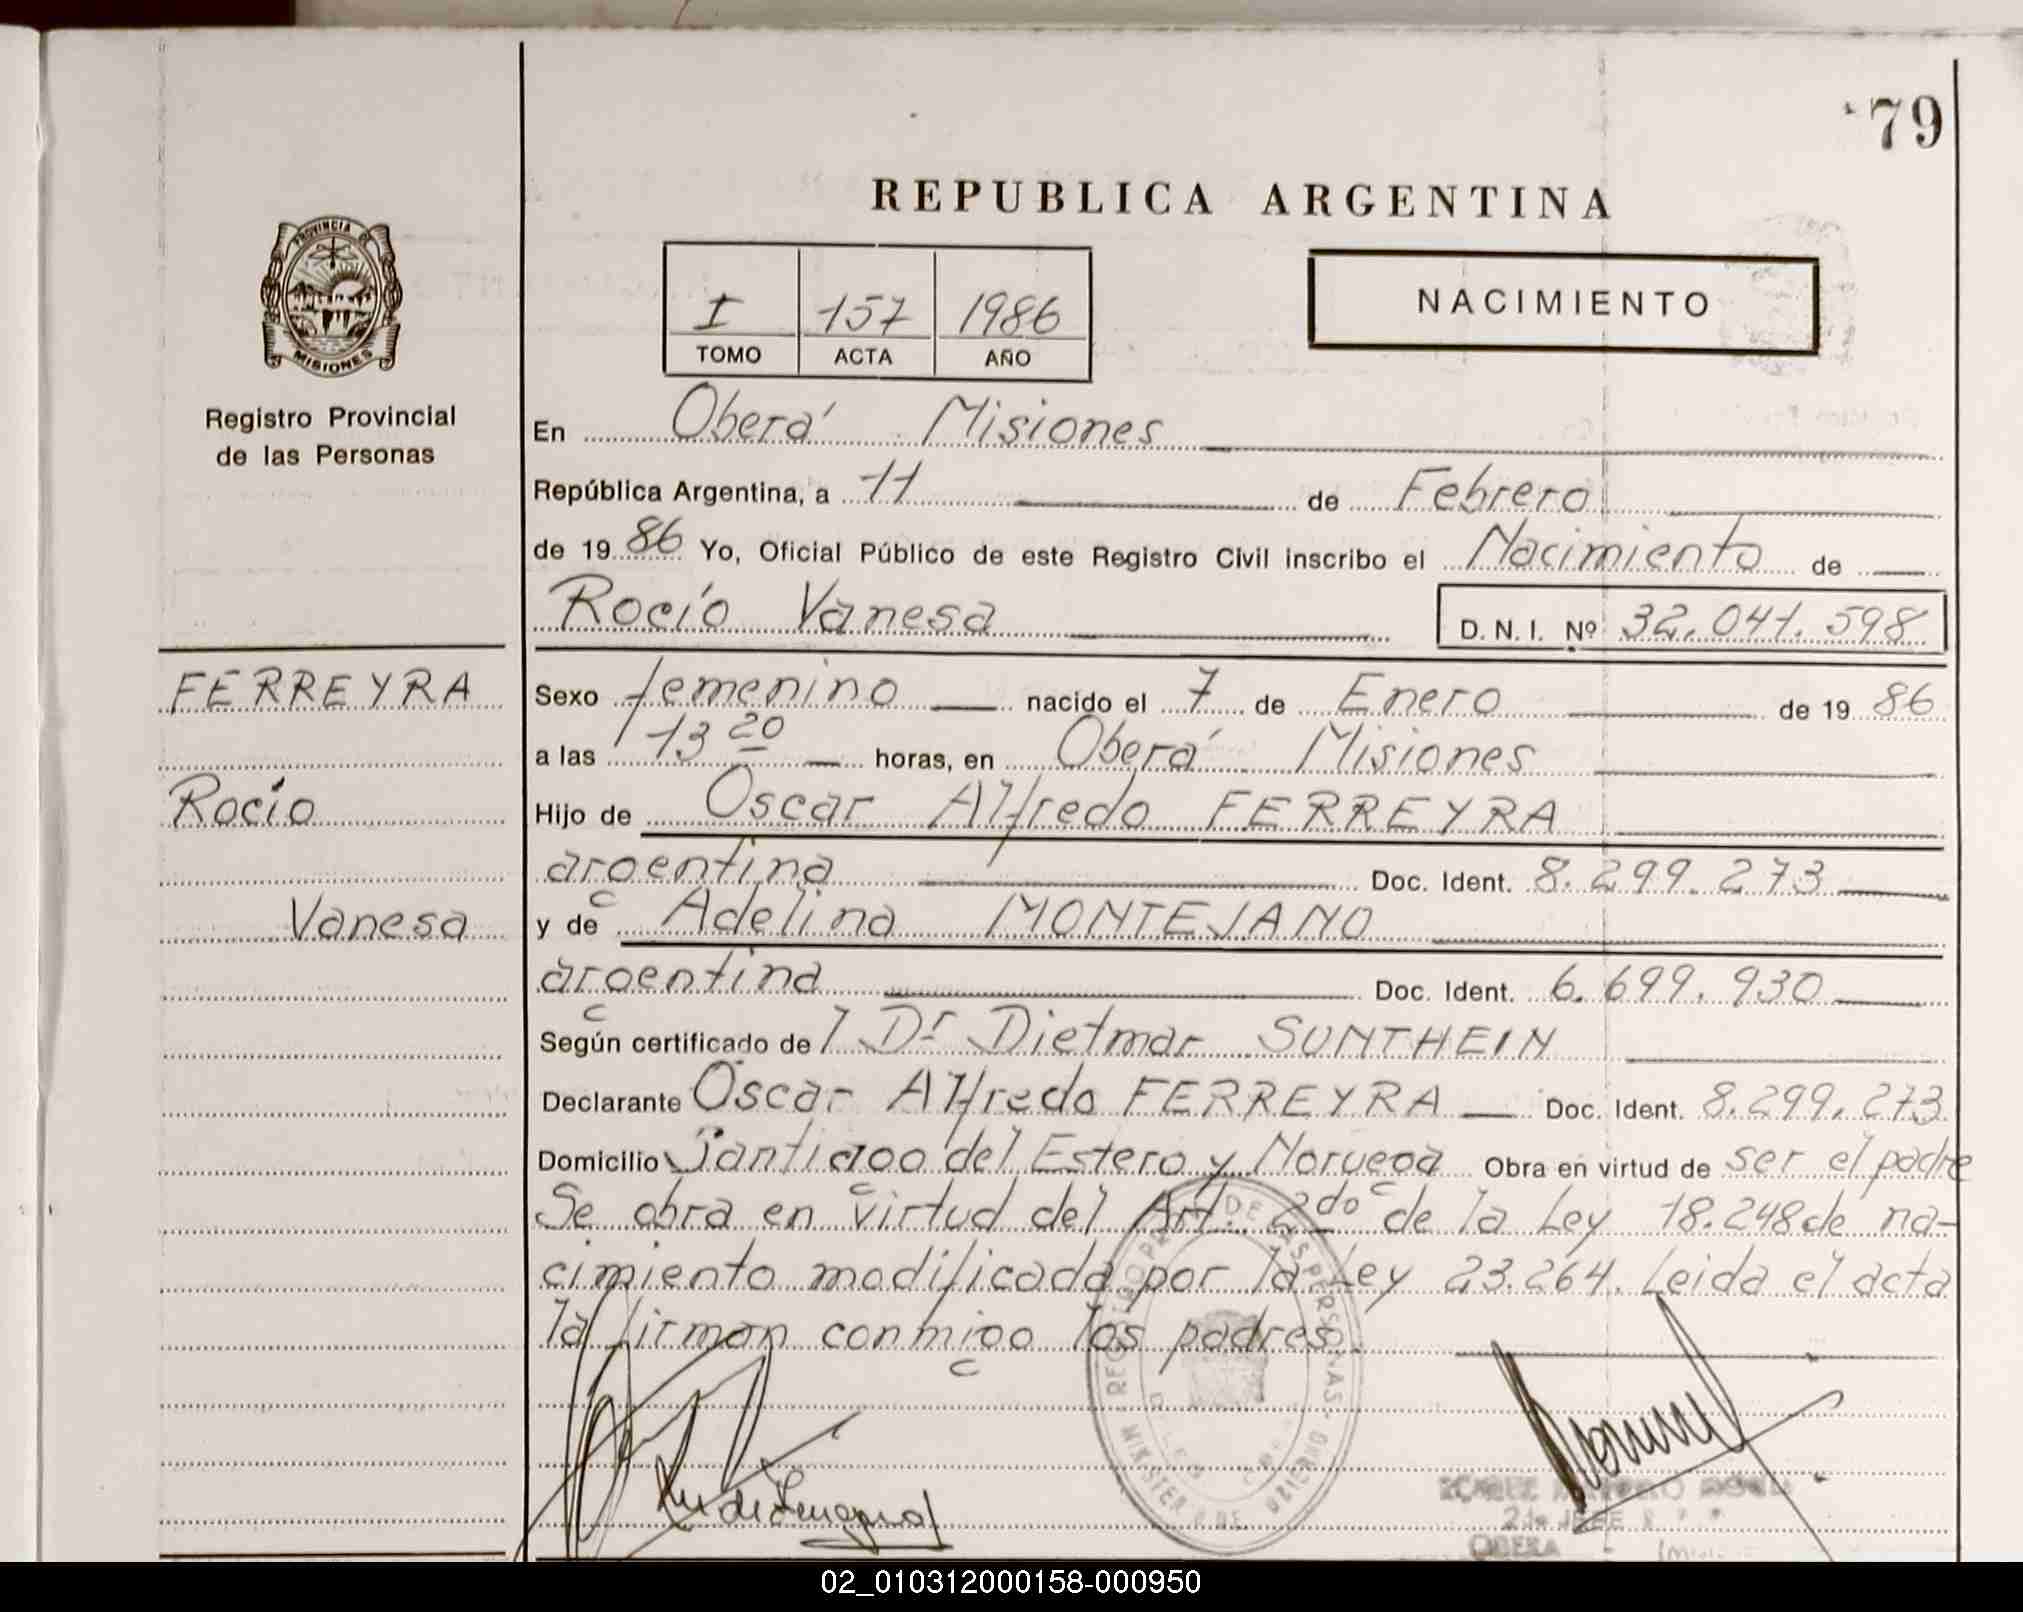 79
REPUBLICA ARGENTINA
PROVINCIA DE
MISIONES
Registro Provincial
de las Personas
I 157 1986
TOMO ACTA AÑO
NACIMIENTO
En Oberá Misiones
República Argentina, a 11 de Febrero
de 1986 Yo, Oficial Público de este Registro Civil inscribo el Nacimiento de
Rocío Vanesa D.N.I. Nº 32.041.598
FERREYRA
Rocío
Vanesa
Sexo femenino nacido el 7 de Enero de 1986
a las 13 20 horas, en Oberá Misiones
Hijo de Oscar Alfredo FERREYRA
argentina Doc. Ident. 8.299.273
y de Adelina MONTEJANO
argentina Doc. Ident. 6.699.930
Según certificado de Dr Dietmar SUNTHEIN
Declarante Oscar Alfredo FERREYRA Doc. Ident. 8.299.273
Domicilio Santiago del Estero y Noruega Obra en virtud de ser el padre
Se obra en virtud del Art. 2do de la Ley 18.248 de na-
cimiento modificada por la Ley 23.264. Leida el acta
la firman conmigo los padres
OBERA
02_010312000158-000950